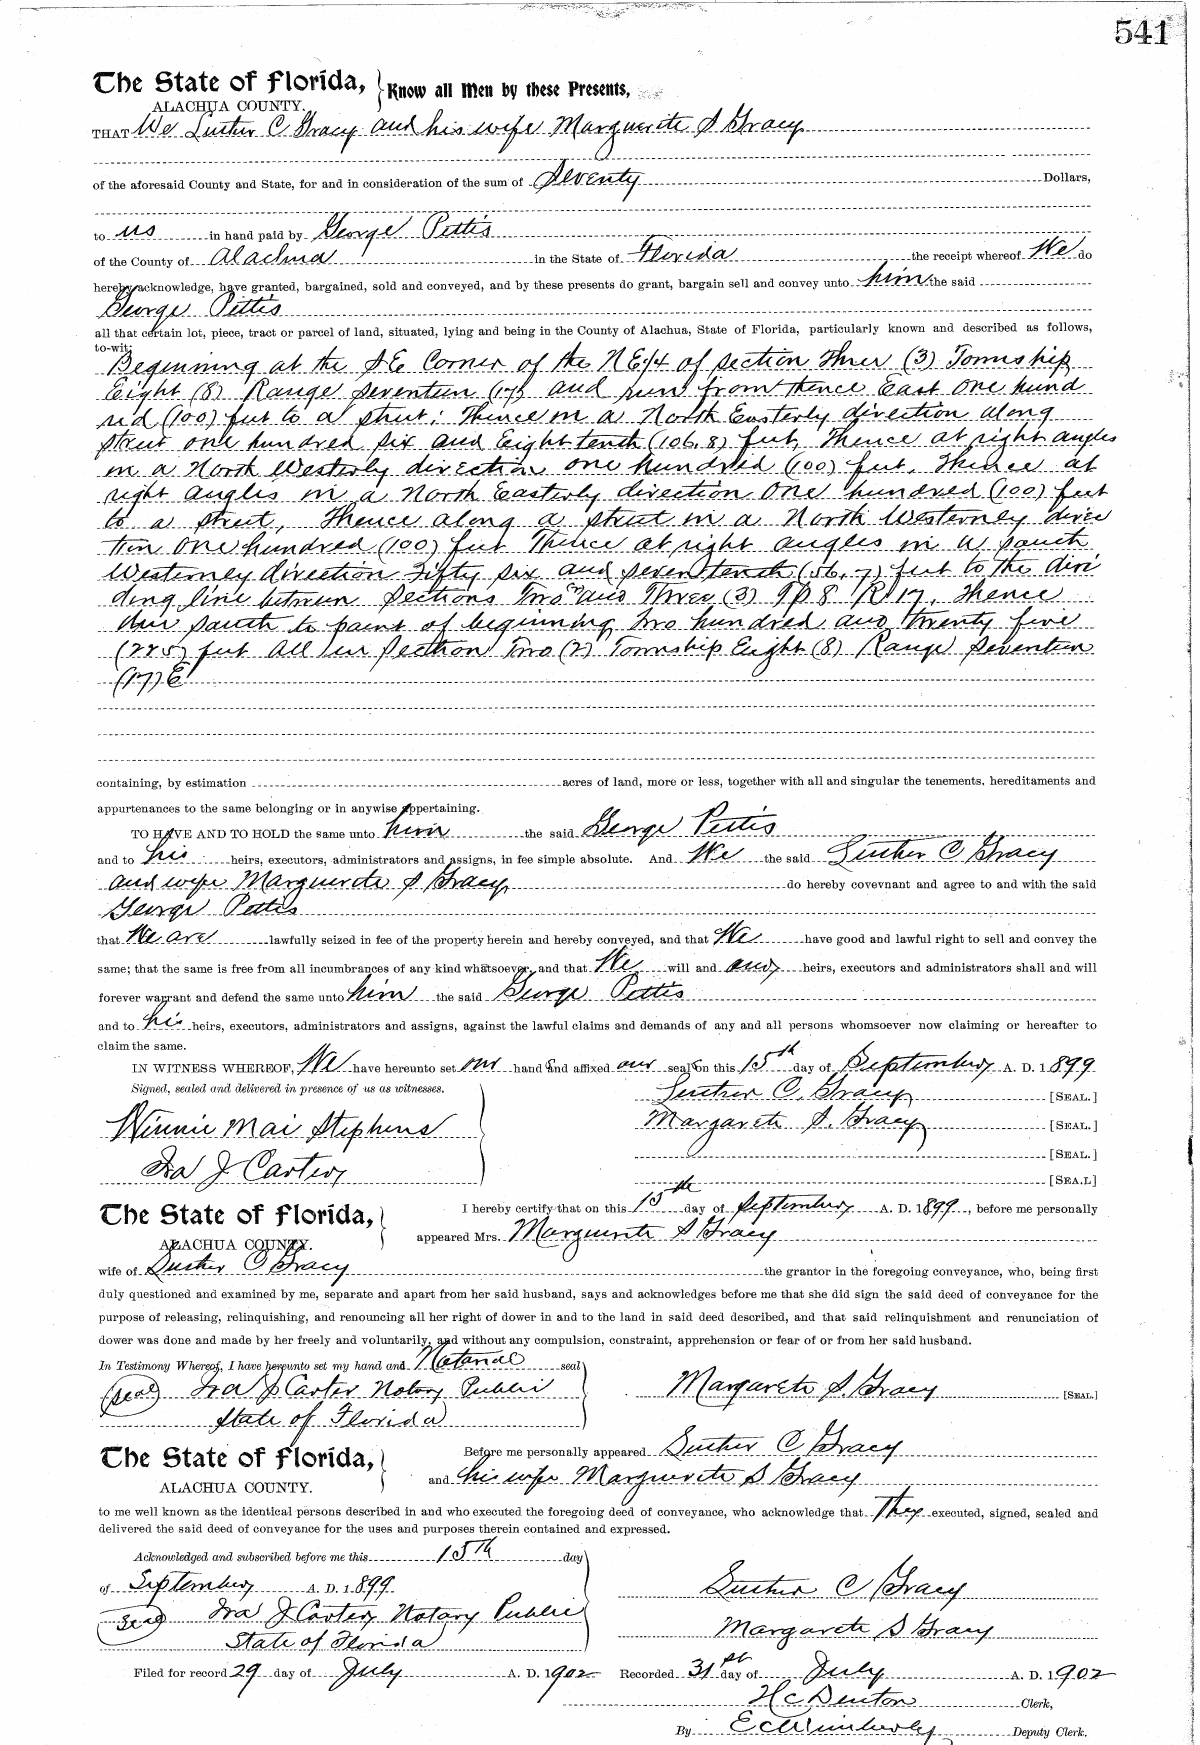 541
The State of Florida, Know all Men by these Presents,
ALACHUA COUNTY.
THAT We Luther C Gracy and his wife Marguerite S Gracy
of the aforesaid County and State, for and in consideration of the sum of Seventy Dollars,
to us in hand paid by George Pettis
of the County of Alachua in the State of Florida the receipt whereof We do
hereby acknowledge, have granted, bargained, sold and conveyed, and by these presents do grant, bargain sell and convey unto him the said
George Pettis
all that certain lot, piece, tract or parcel of land, situated, lying and being in the County of Alachua, State of Florida, particularly known and described as follows,
to-wit:
Beginning at the SE Corner of the NE/4 of section Three (3) Township
Eight (8) Range seventeen (17) and run from thence East one hund
red (100) feet to a street; Thence in a North Easterly direction along
street one hundred six and Eight tenth (106.8) feet, Thence at right angles
in a North Westerly direction one hundred (100) feet. Thence at
right angles in a North Easterly direction One hundred (100) feet
to a street, Thence along a street in a North Westernley direc
tion One hundred (100) feet Thence at right angles in a South
Westernley direction Fifty six and seven tenth (56.7) feet to the divi
ding line between Sections Two and Three (3) Tp 8 R 17. Thence
due south to point of beginning Two hundred and twenty five
(225) feet All in Section Two (2) Township Eight (8) Range Seventeen
(17) E
containing, by estimation acres of land, more or less, together with all and singular the tenements, hereditaments and
appurtenances to the same belonging or in anywise appertaining.
TO HAVE AND TO HOLD the same unto him the said George Pettis
and to his heirs, executors, administrators and assigns, in fee simple absolute. And We the said Luther C Gracy
and wife Marguerite S Gracy do hereby covevnant and agree to and with the said
George Pettis
that We are lawfully seized in fee of the property herein and hereby conveyed, and that We have good and lawful right to sell and convey the
same; that the same is free from all incumbrances of any kind whatsoever, and that We will and our heirs, executors and administrators shall and will
forever warrant and defend the same unto him the said George Pettis
and to his heirs, executors, administrators and assigns, against the lawful claims and demands of any and all persons whomsoever now claiming or hereafter to
claim the same.
IN WITNESS WHEREOF, We have hereunto set our hand and affixed our seal on this 15th day of September A. D. 1899
Signed, sealed and delivered in presence of us as witnesses.
Luther C. Gracy [SEAL.]
Winnie Mai Stephens
Margarete S. Gracy [SEAL.]
[SEAL.]
Ira J Carter
[SEA.L]
The State of Florida, I hereby certify that on this 15th day of September A. D. 1899, before me personally
ALACHUA COUNTY. appeared Mrs. Marguerite S Gracy
wife of Luther C Gracy the grantor in the foregoing conveyance, who, being first
duly questioned and examined by me, separate and apart from her said husband, says and acknowledges before me that she did sign the said deed of conveyance for the
purpose of releasing, relinquishing, and renouncing all her right of dower in and to the land in said deed described, and that said relinquishment and renunciation of
dower was done and made by her freely and voluntarily, and without any compulsion, constraint, apprehension or fear of or from her said husband.
In Testimony Whereof, I have hereunto set my hand and Notarial seal
(seal) Ira J Carter Notary Public Margarete S. Gracy [SEAL.]
State of Florida
The State of Florida, Before me personally appeared Luther C Gracy
ALACHUA COUNTY. and his wife Marguerite S Gracy
to me well known as the identical persons described in and who executed the foregoing deed of conveyance, who acknowledge that They executed, signed, sealed and
delivered the said deed of conveyance for the uses and purposes therein contained and expressed.
Acknowledged and subscribed before me this 15th day
of September A. D. 1899 Luther C Gracy
(seal) Ira J Carter Notary Public
State of Florida Margarete S Gracy
Filed for record 29 day of July A. D. 1902 Recorded 31st day of July A. D. 1902
H C Denton Clerk,
By E C Wimberly Deputy Clerk.